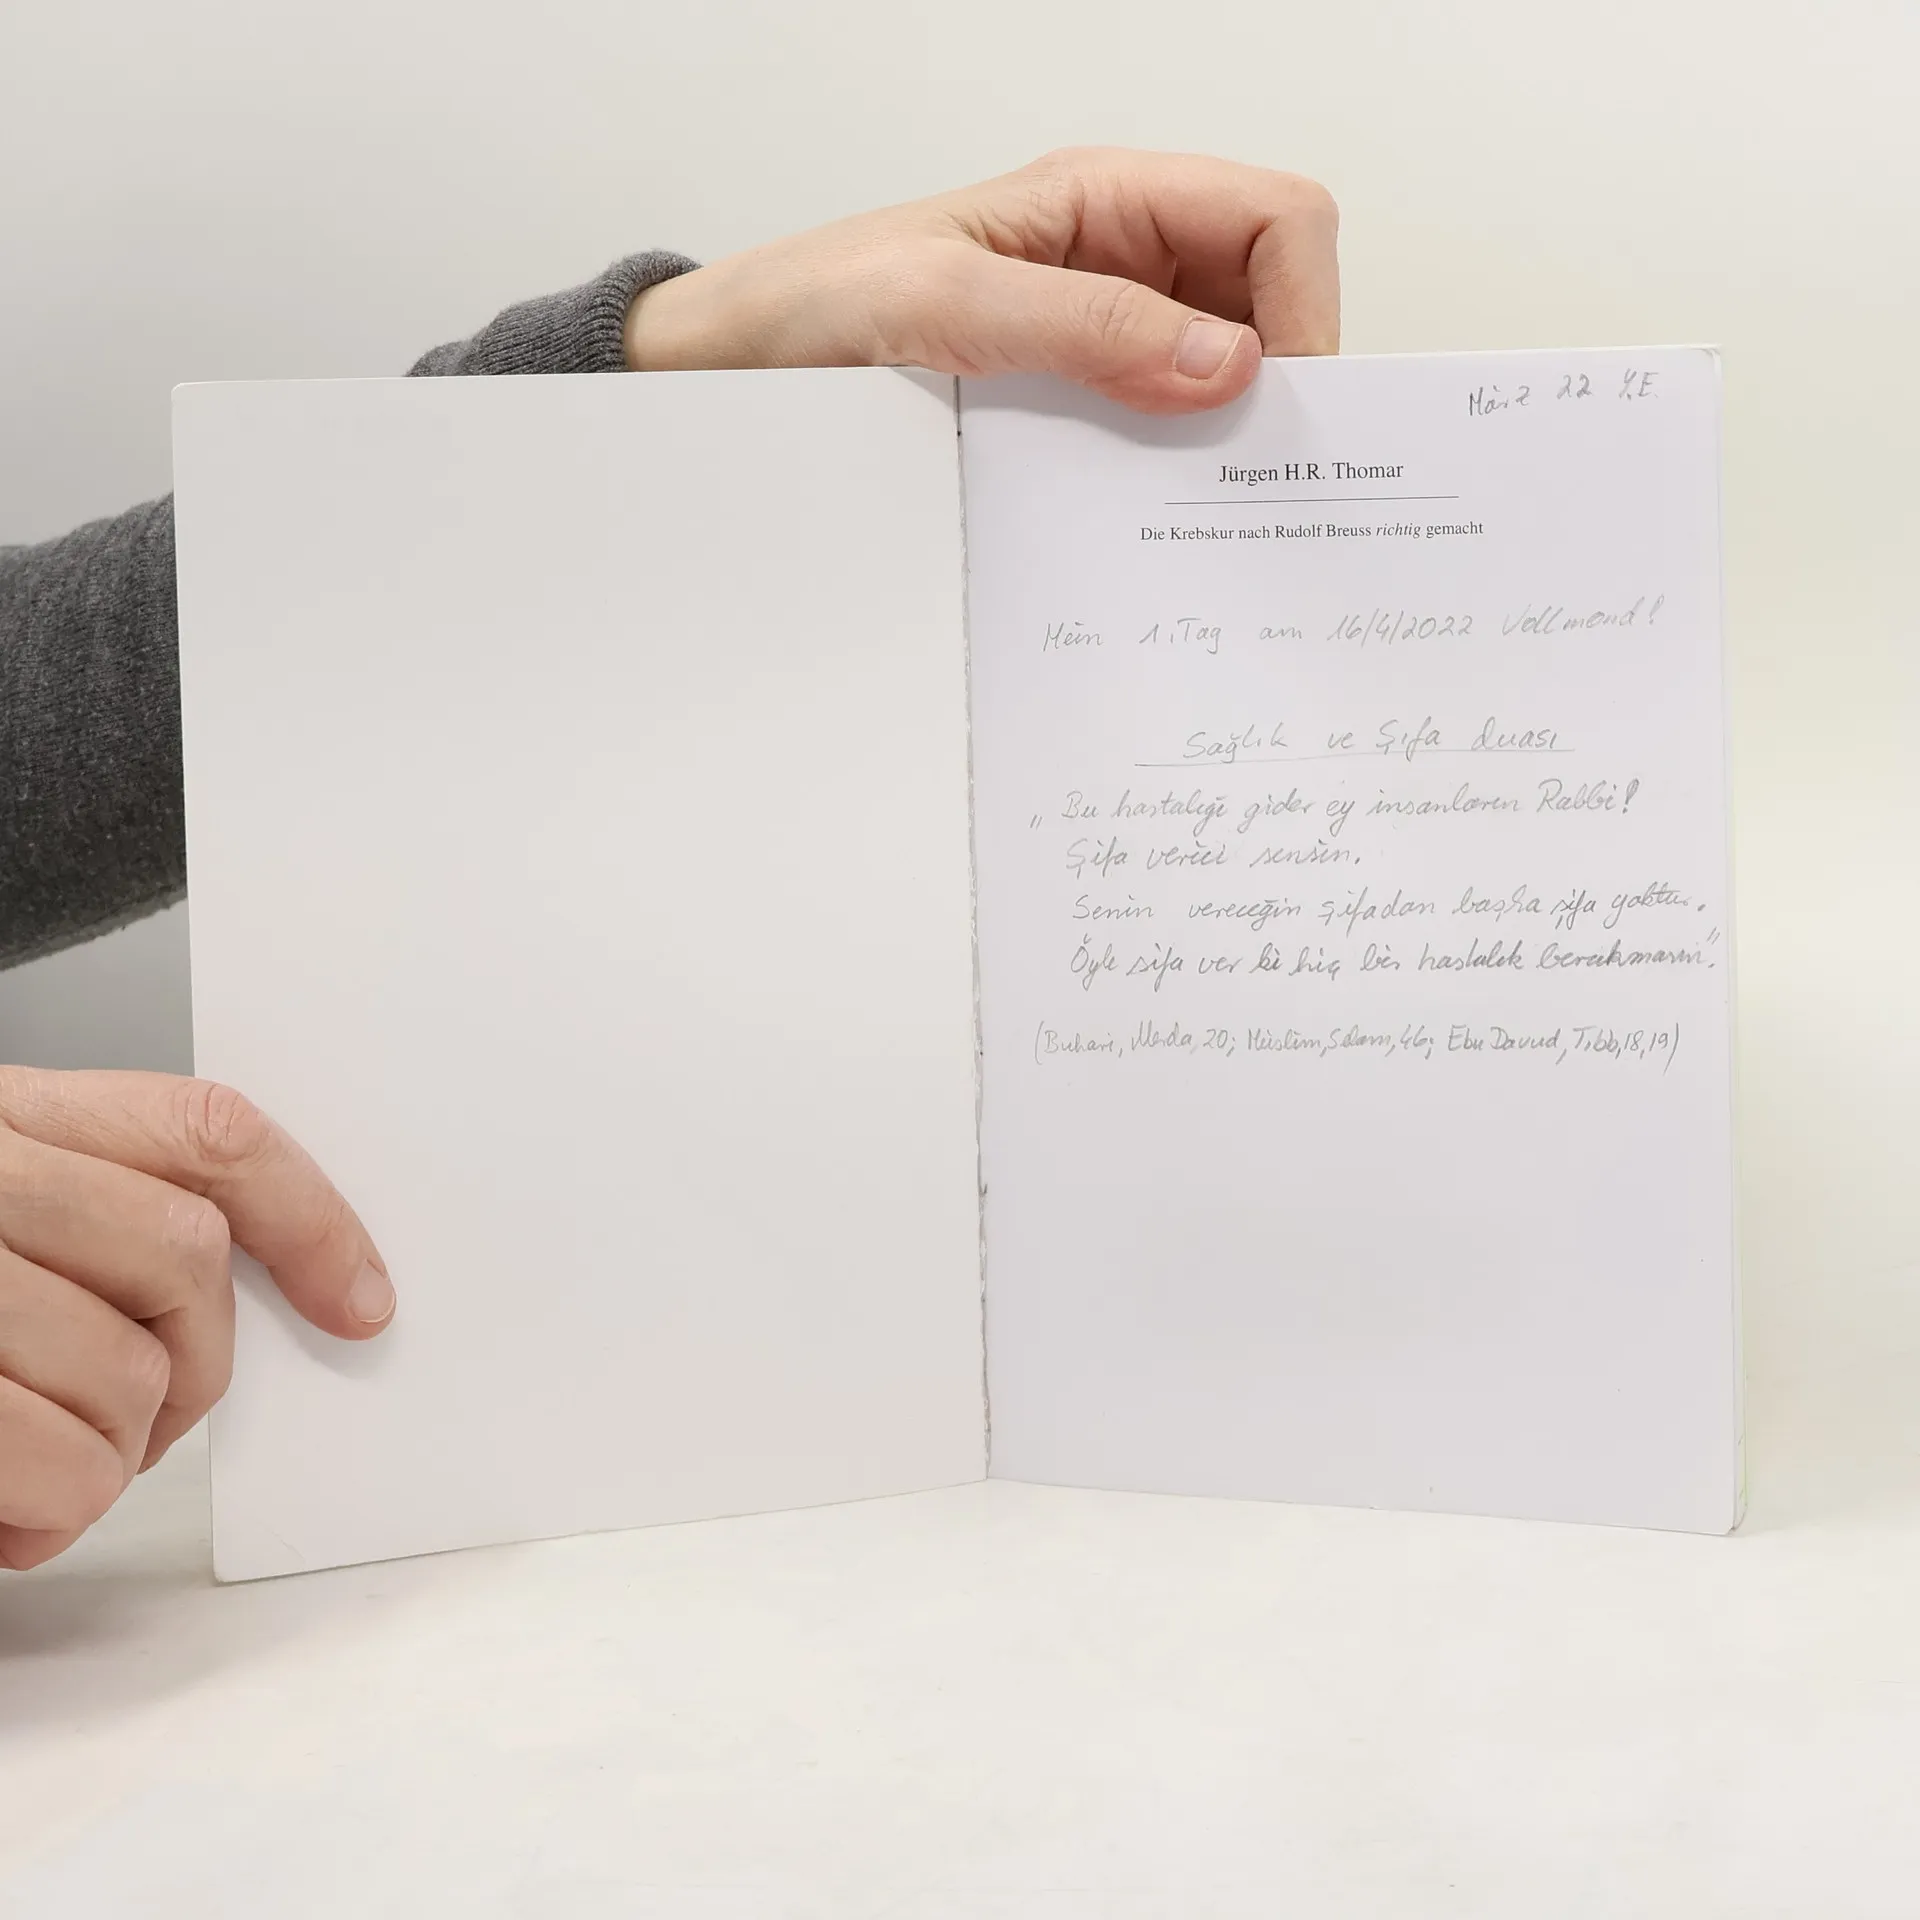 März 22 Y.E.
Jürgen H.R. Thomar
Die Krebskur nach Rudolf Breuss richtig gemacht
Mein 1. Tag am 16/4/2022 Vollmond!
Sağlık ve Şifa duası
„Bu hastalığı gider ey insanların Rabbi!
Şifa verici sensin.
Senin vereceğin şifadan başka şifa yoktur.
Öyle şifa ver ki hiç bir hastalık bırakmasın."
(Buhari, Merda, 20; Müslim, Selam, 46; Ebu Davud, Tıbb, 18, 19)